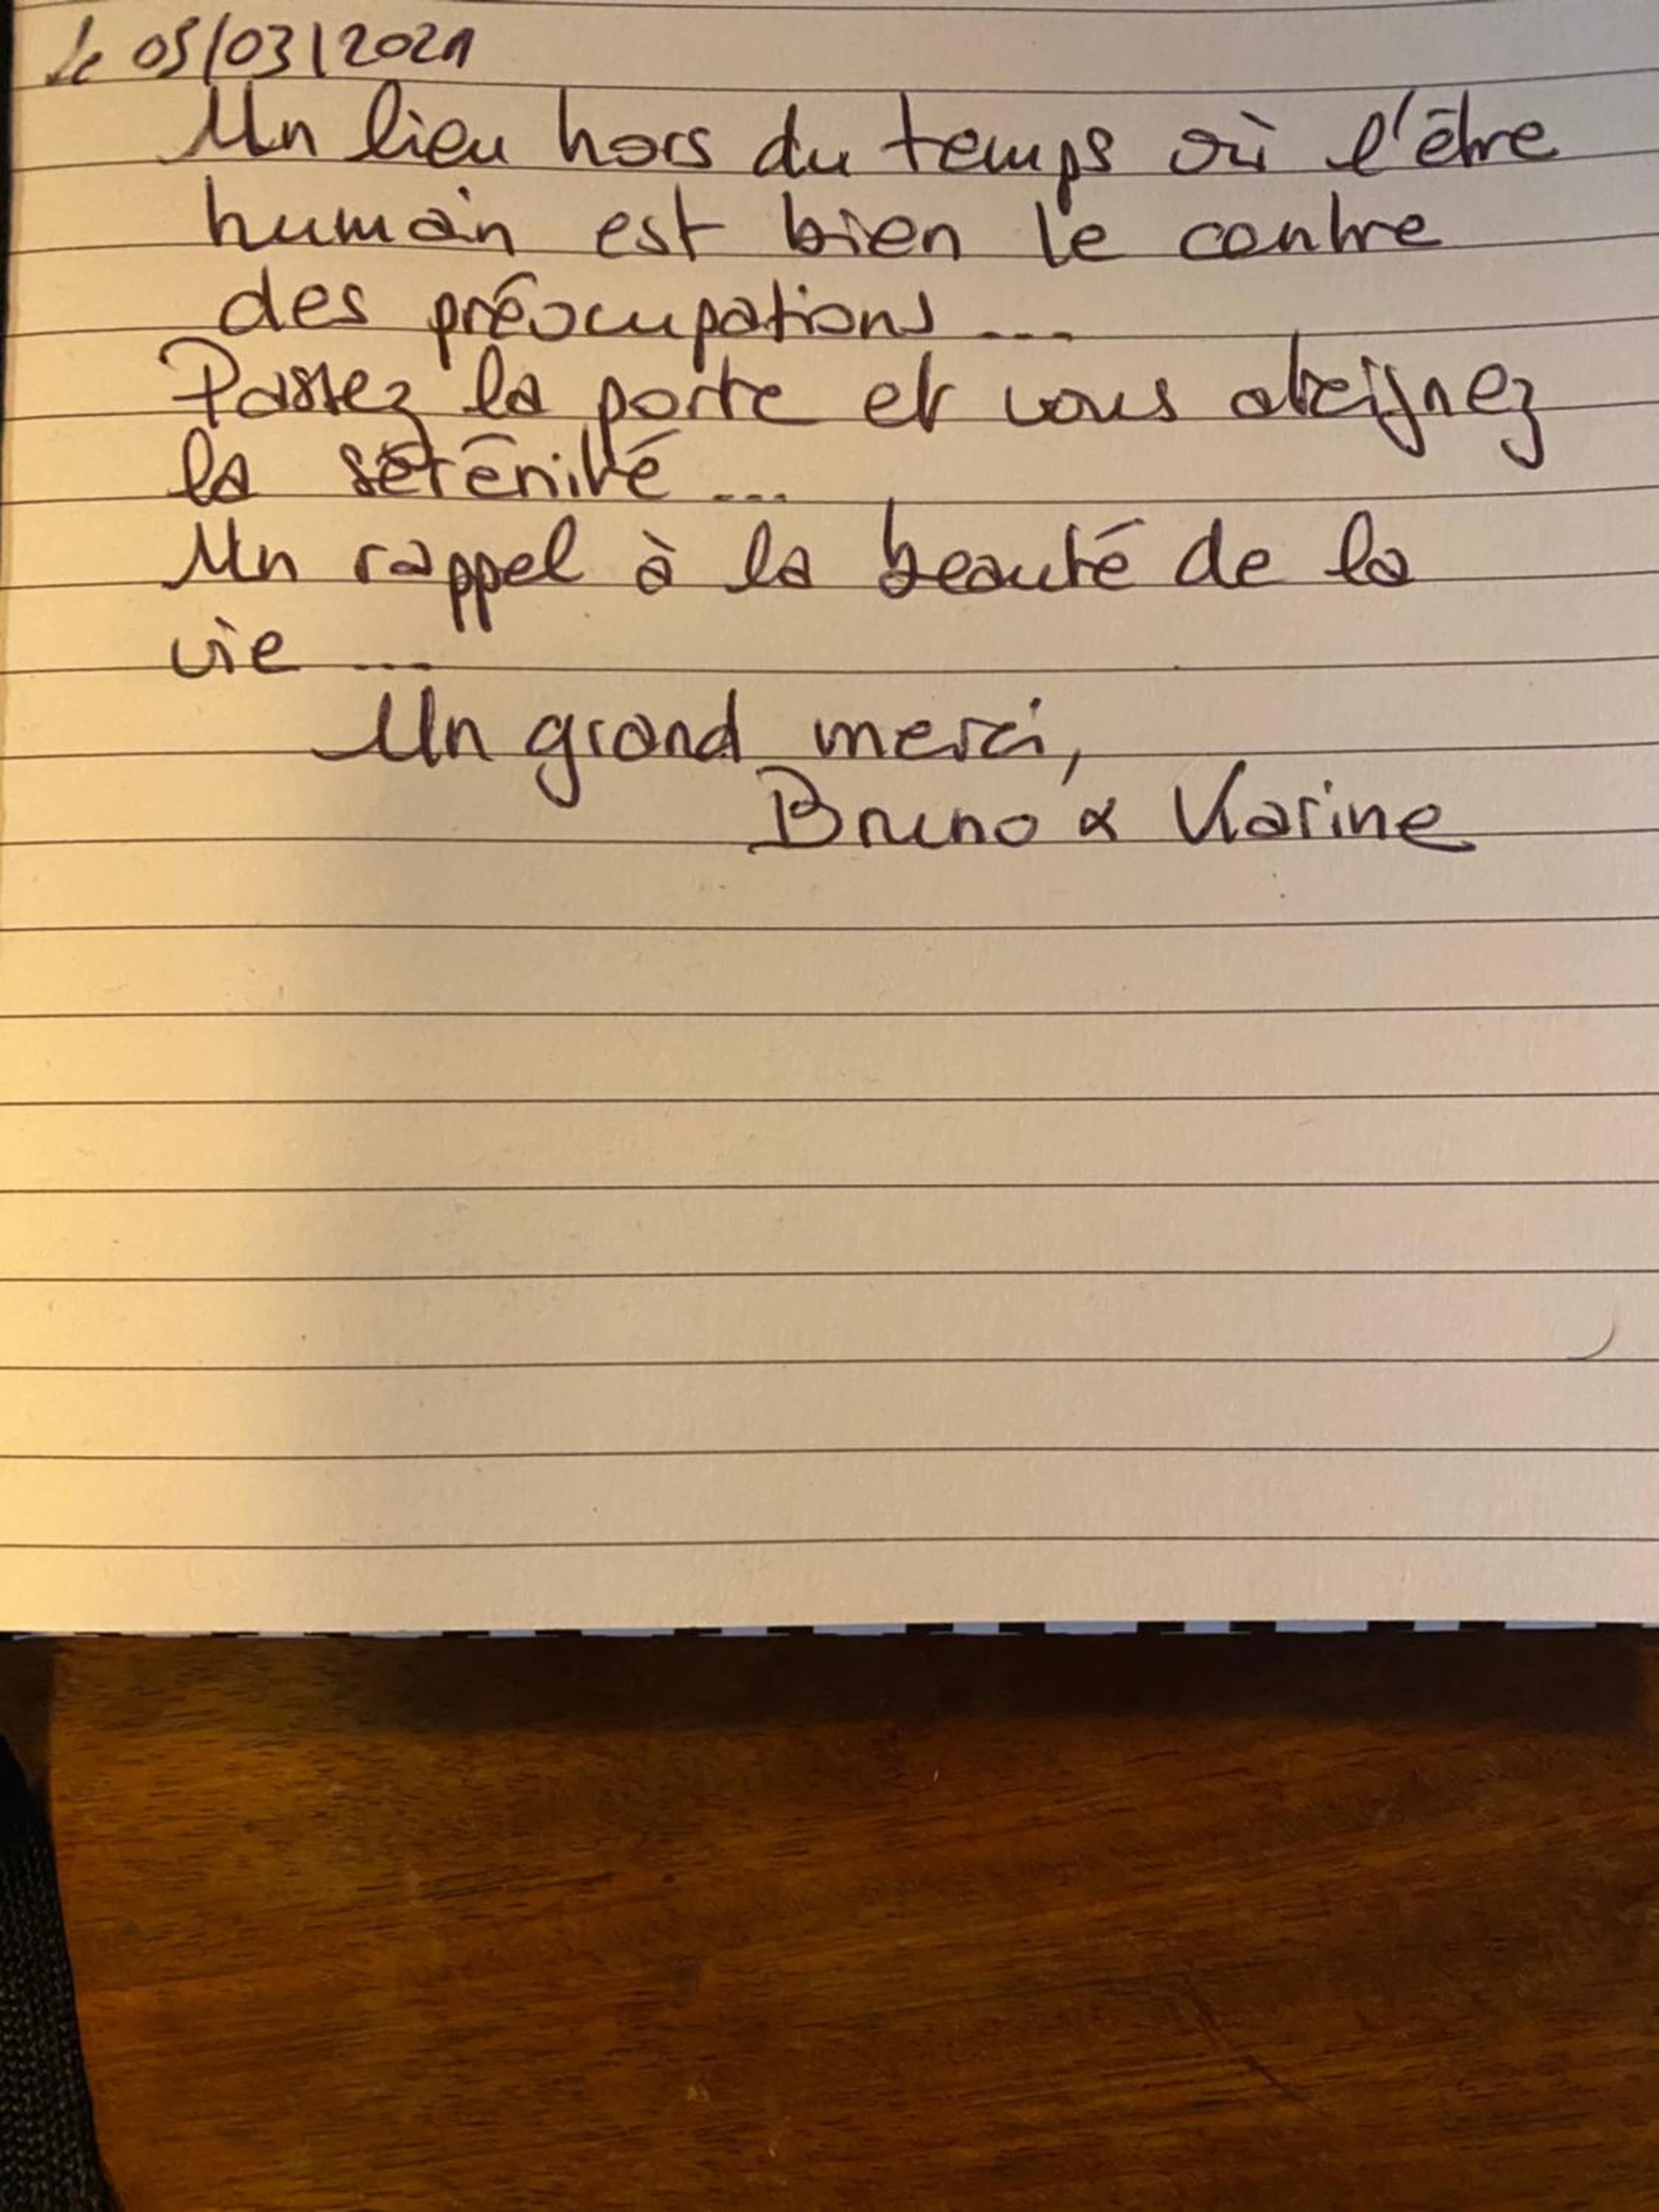 Le 05/03/2021
Un lieu hors du temps où l'être
humain est bien le centre
des préocupations ...
Passez la porte et vous ateignez
la sérénité ...
Un rappel à la beauté de la
vie ...
Un grand merci,
Bruno & Karine